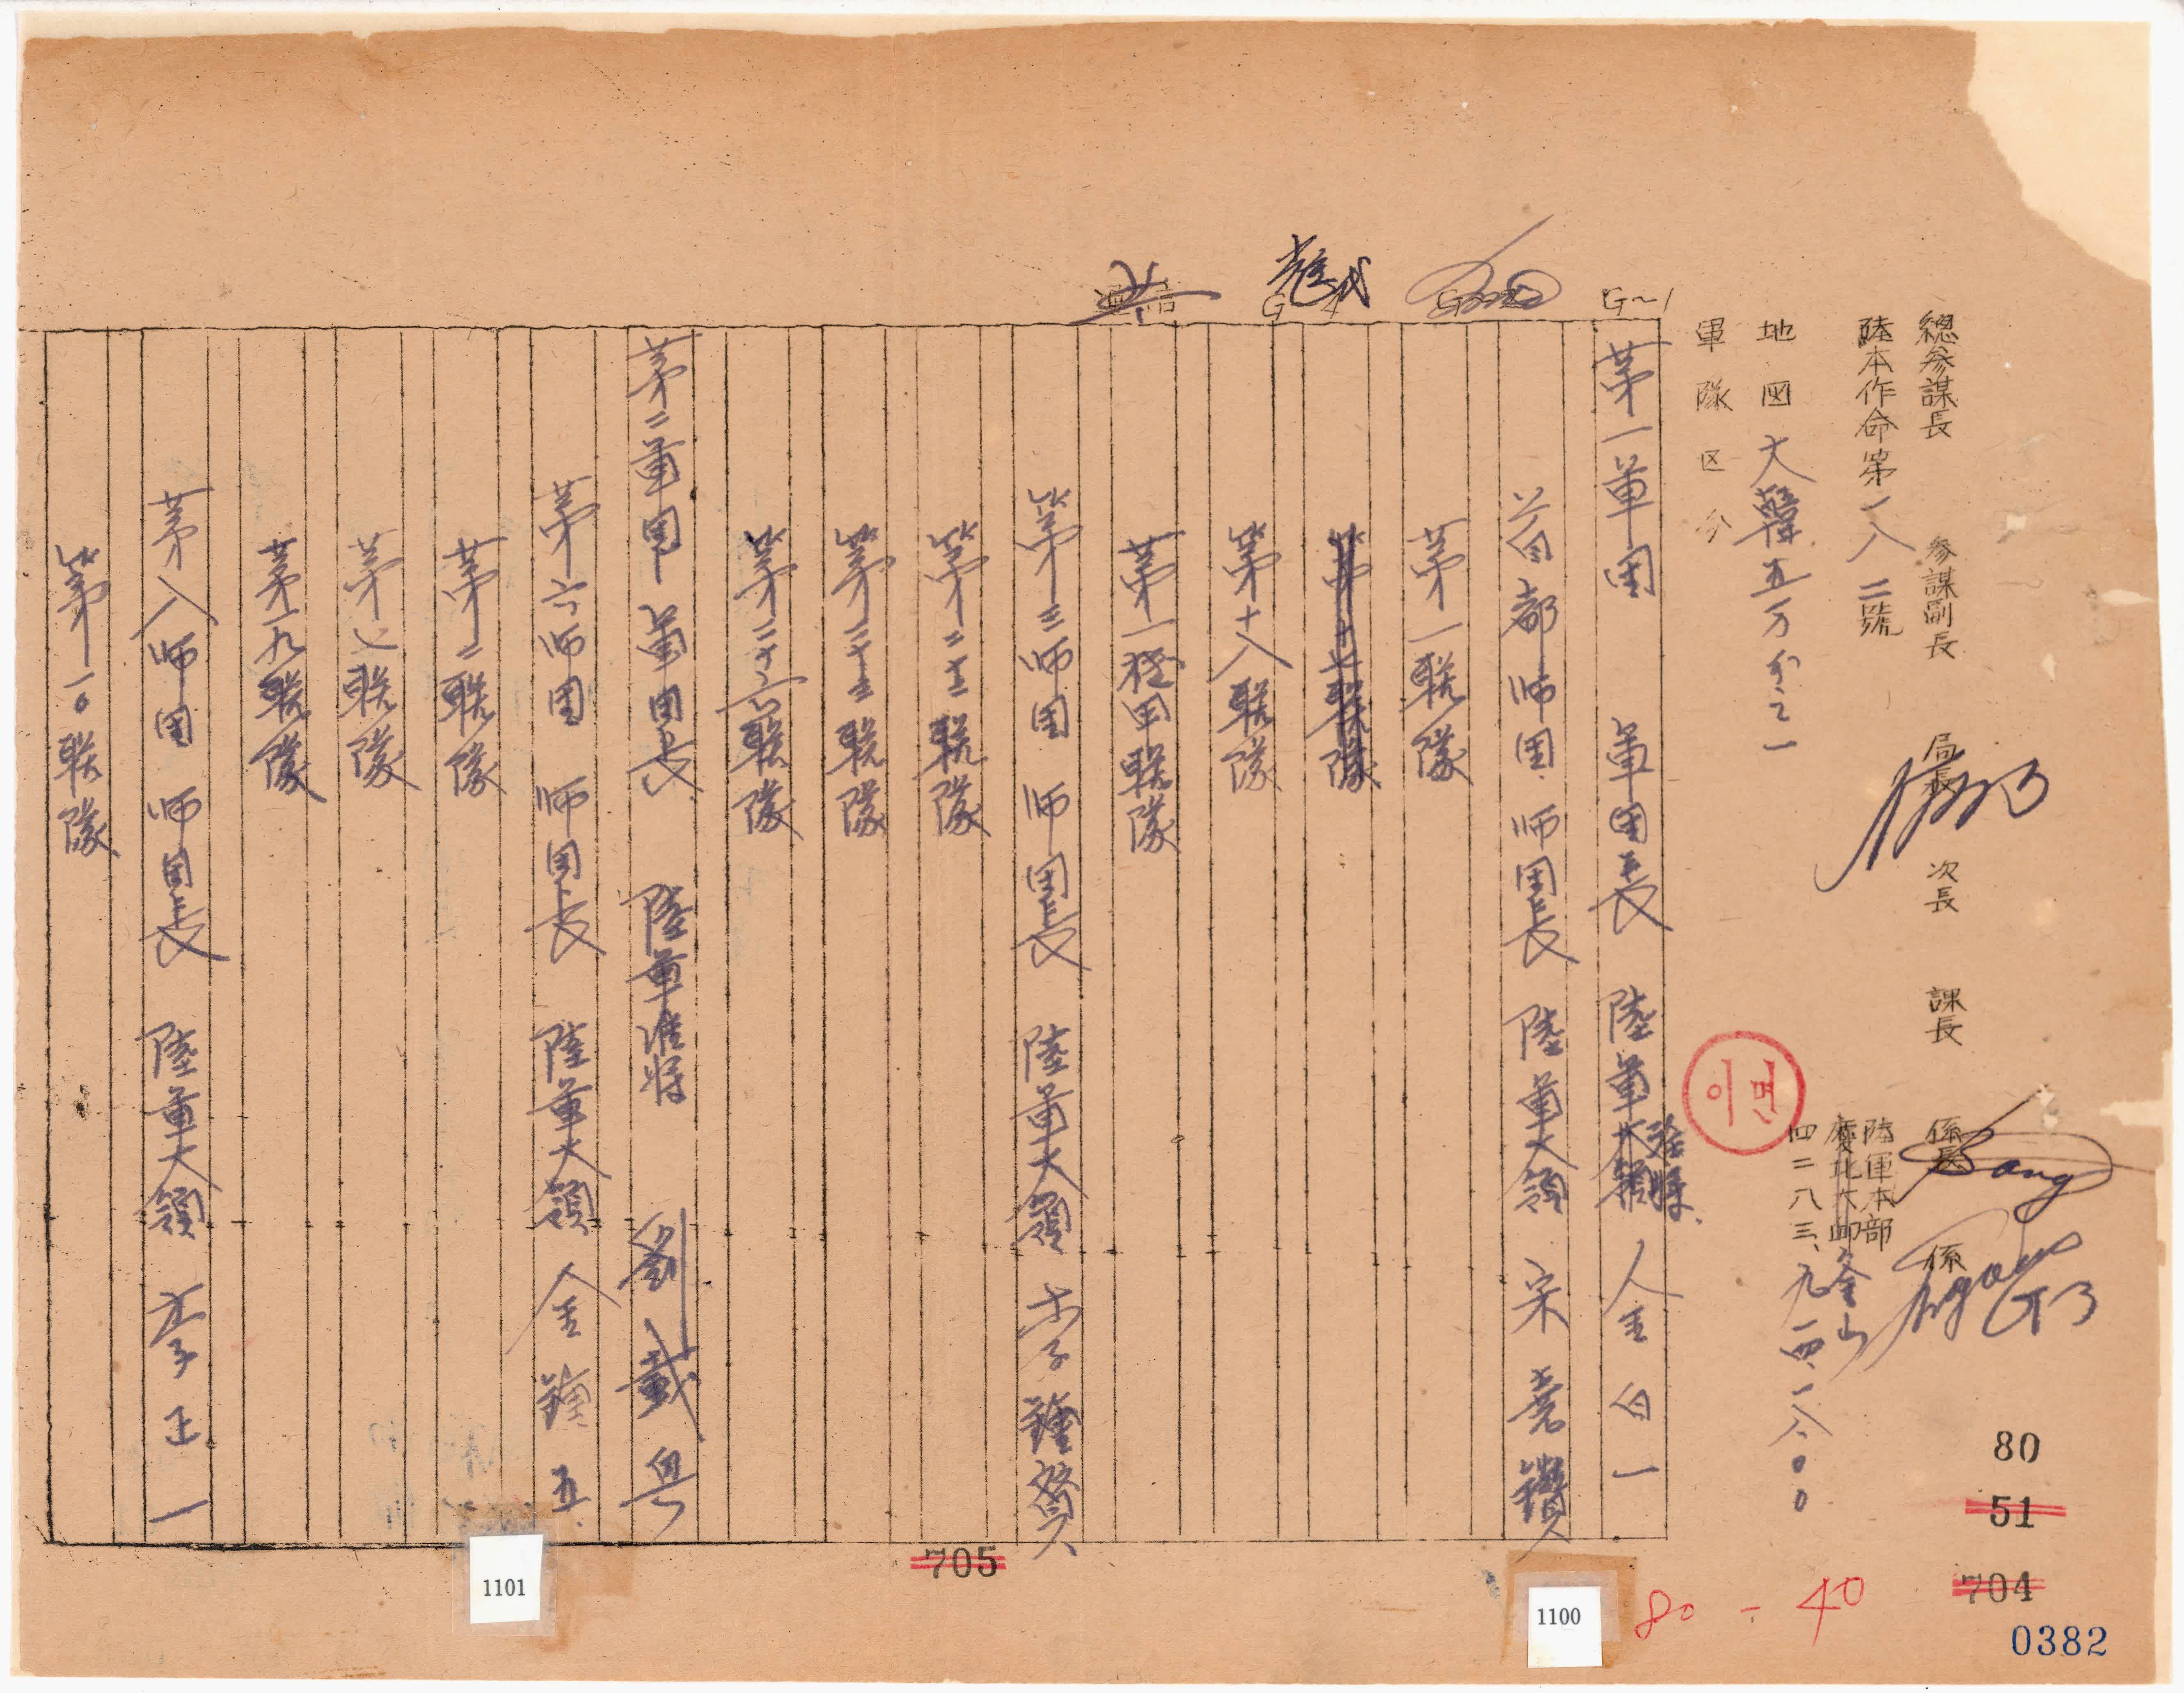 總參謀長 參謀副長 局長 次長 課長 係長 係
陸本作命第一八二號
陸軍本部
慶北大邱 釜山
四二八三、九、一四、一八〇〇
地圖 大韓五万分之一
軍隊区分
이면
G-1
G-4
第一軍団 軍団長 陸軍大領 准將 金白一
首都师団 师団長 陸軍大領 宋堯讚
第一联隊
第十七联隊
第十八联隊
第一機甲联隊
第三师団 师団長 陸軍大領 李鍾贊
第二十二联隊
第二十三联隊
第二十六联隊
第二軍団 軍団長 陸軍准將 劉載興
第六师団 师団長 陸軍大領 金鍾五
第二联隊
第七联隊
第一九联隊
第八师団 师団長 陸軍大領 李正一
第一〇联隊
80
51
704
0382
80-40
1100
705
1101